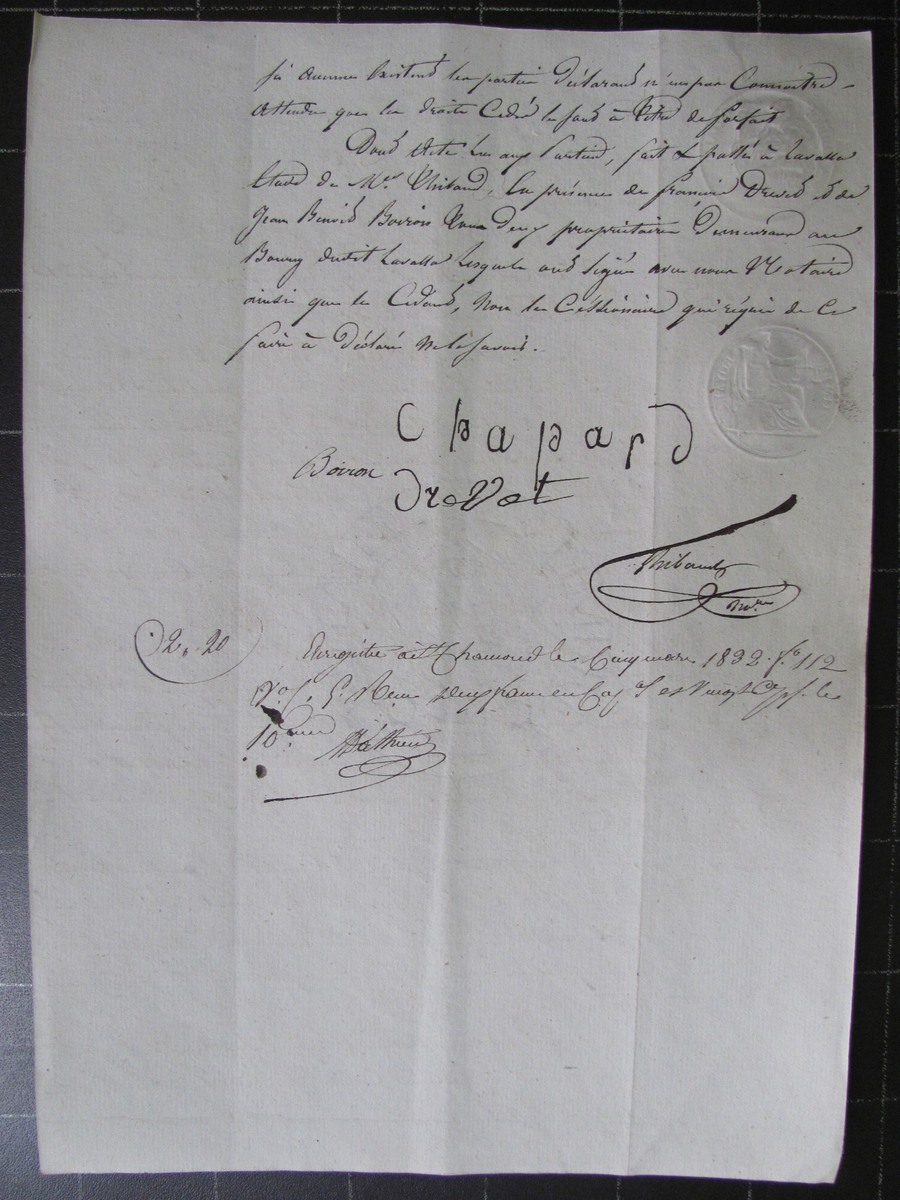 si aucunes existent les parties déclarant n'en pas connoitre
attendu que les droits cédés le sont à titre de forfait
Dont acte lu aux parties, fait & passé à Lavalla
étude de Me Thibaud, en présence de françois Drevet et de
Jean Benoit Boiron tous deux propriétaires demeurant au
Bourg dudit Lavalla lesquels ont signé avec nous Notaire
ainsi que le Cédant, non le Cessionnaire qui requis de ce
faire a déclaré ne le savoir.
Chapard
Boiron
Drevet
Thibaud
Nre
2. 20
Enregistré à St Chamond le cinq mars 1832 fo 112
Vo C. 5. Reçu deux francs et vingt Cmes pr le
10eme